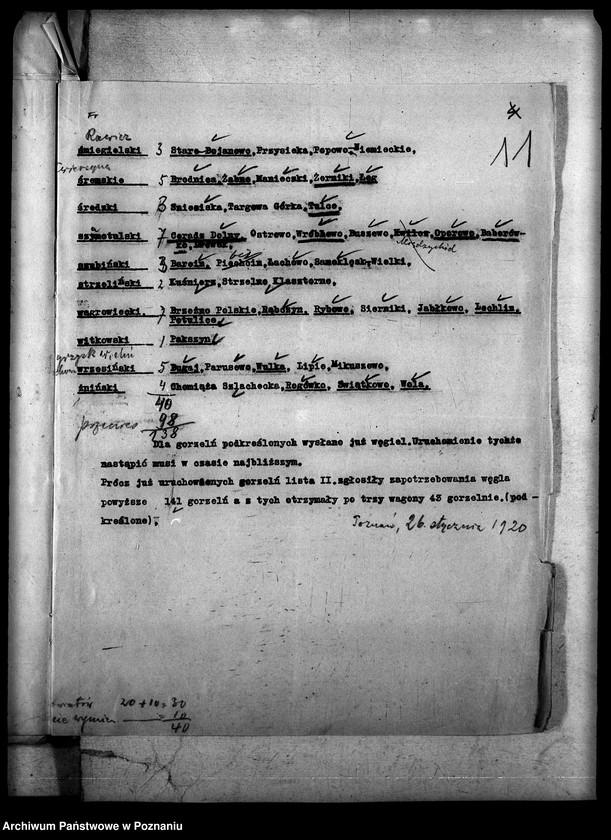 Fr
11
Rawicz
śmiegielski 3 Stare-Bojanowo,Przysieka,Popowo Niemieckie,
śremskie 5 Brodnica,Żabno,Manieczki,Żerniki,Łęg
średzki 3 Śnieciska,Targowa Górka,Tulce,
szamotulski 7 Ceradz Dolny, Ostrowo,Wróblewo,Buszewo,Kwilew,Oporowo,Baborów-
ko,
Międzychód
szubiński 3 Barcin, Piechcin,Lachowo,Samoklęsk-Wielki,
strzeliński 2 Kuśnierz,Strzelno Klasztorne,
wągrowiecki. 7 Brzeźno Polskie,Rąbczyn, Rybowo, Sierniki, Jabłkowo, Lechlin,
Potulice
witkowski 1 Pakszyn
wrzesiński 5 Bugaj,Parusewo,Wulka, Lipie,Mikuszewo,
żniński 4 Chomiąża Szlachecka,Rogówko, Swiątkowo, Wola.
40
przenies 98
138
Dla gorzelń podkreślonych wysłano już węgiel.Uruchomienie tychże
nastąpić musi w czasie najbliższym.
Prócz już uruchomionych gorzelń lista II.zgłosiły zapotrzebowania węgla
powyższe 141 gorzelń a z tych otrzymały po trzy wagony 43 gorzelnie.(pod -
kreślone).
Poznań, 26. stycznia 1920
20 + 10 = 30
10
40
Archiwum Państwowe w Poznaniu